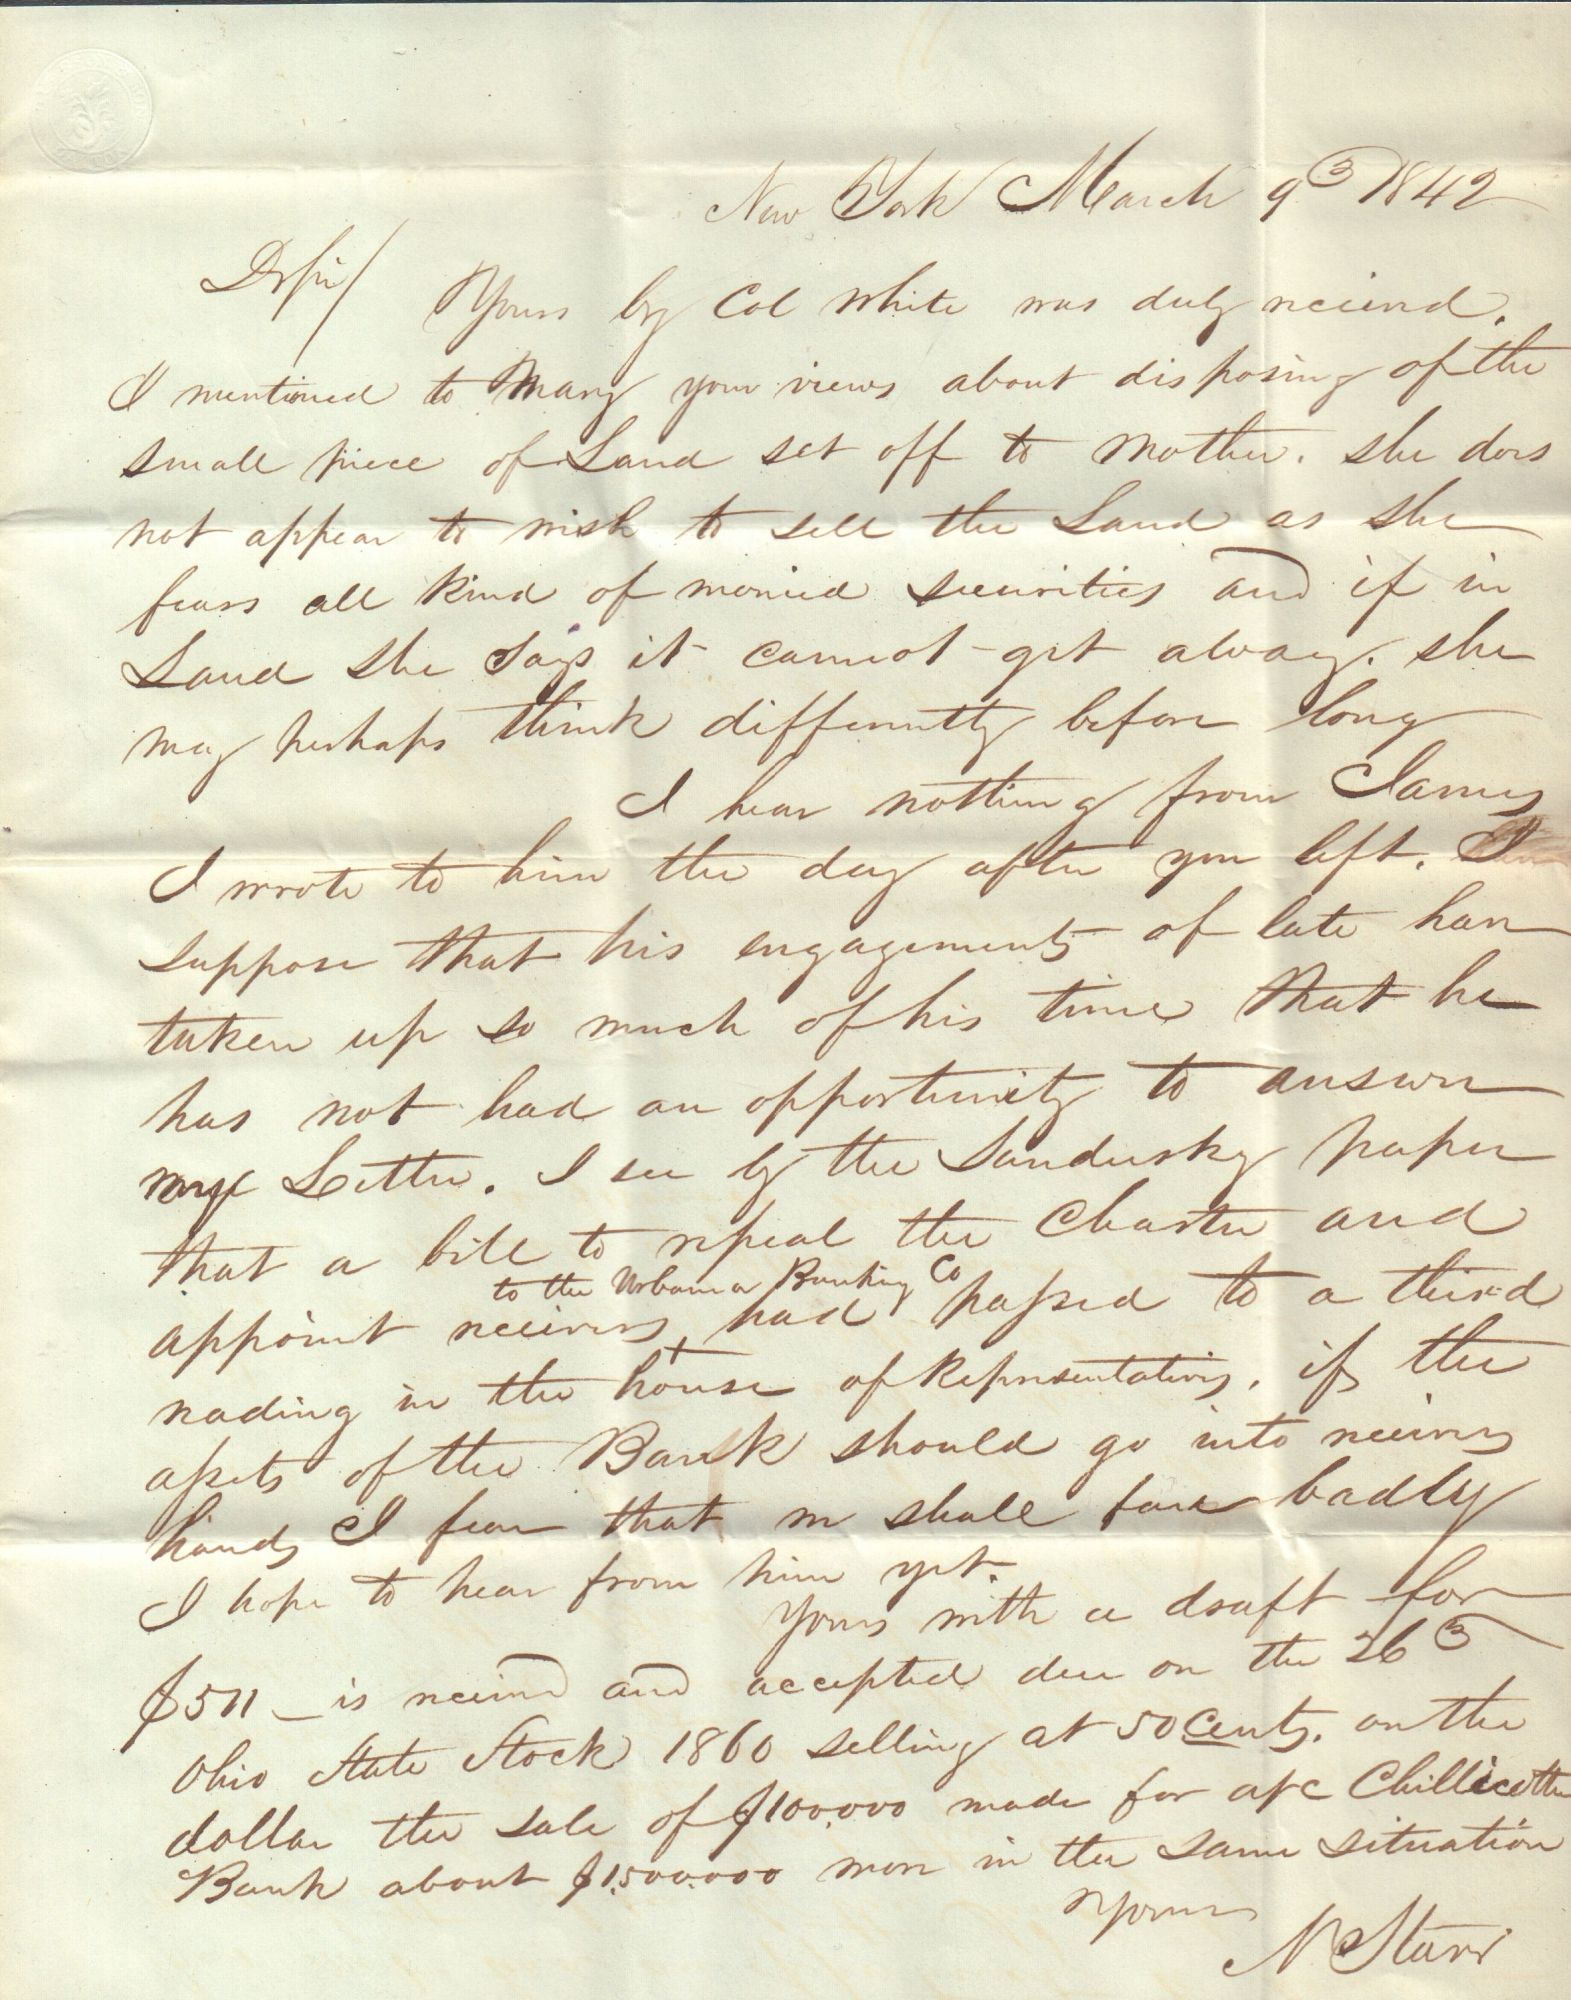 New York March 9th 1842
Dr Sir/ Yours by Col White was duly received.
I mentioned to Mary your views about disposing of the
small piece of Land set off to Mother. she does
not appear to wish to sell the Land as she
fears all kind of monied securities and if in
Land she says it cannot get alway. she
may perhaps think differently before long
I hear nothing from James
I wrote to him the day after you left. I
suppose that his engagements of late have
taken up so much of his time that he
has not had an opportunity to answer
my Letter. I see by the Sandusky paper
that a bill to repeal the Charter and
to the Urbana Banking Co
appoint receivers had passed to a third
reading in the house of Representatives. if the
assets of the Bank should go into receivers
hands I fear that we shall fare badly
I hope to hear from him yet.
Yours with a draft for
$511 is received and accepted due on the 26
Ohio State Stock 1860 selling at 50 Cents. on the
dollar the sale of $100.000 made for a/c Chillicothe
Bank about $1.500.000 more in the same situation
Yours
N Starr